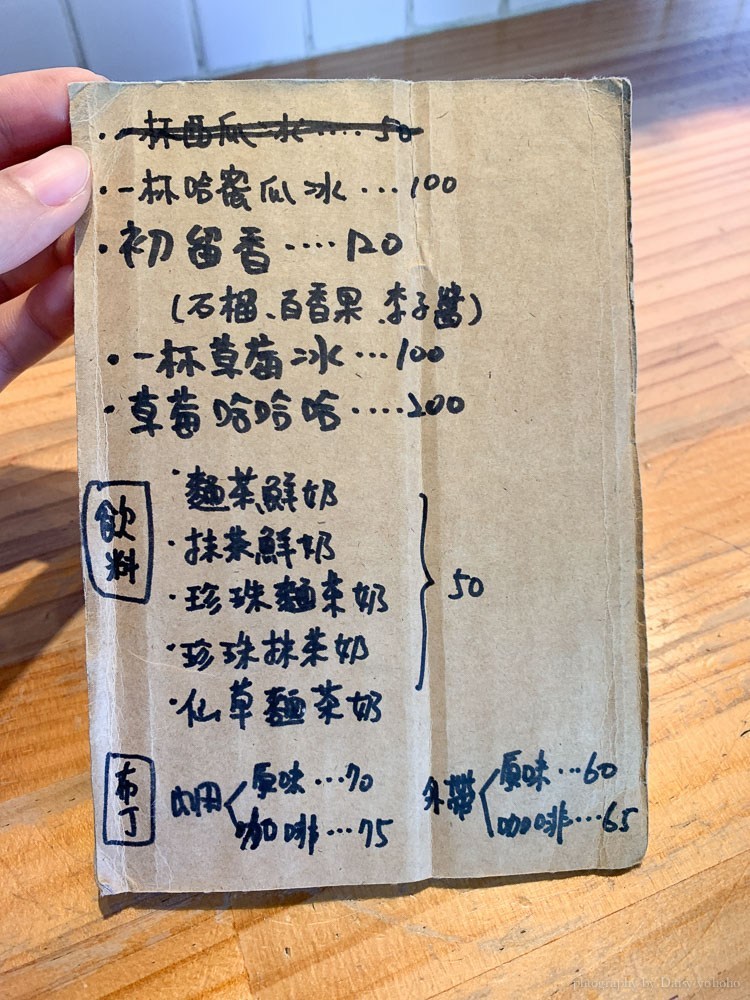 ·一杯西瓜冰····50
·一杯哈蜜瓜冰···100
·初留香····120
(石榴、百香果、李子醬)
·一杯草莓冰···100
·草莓哈哈哈····200
飲料
·麵茶鮮奶
·抹茶鮮奶
·珍珠麵茶奶
·珍珠抹茶奶
·仙草麵茶奶
50
布丁
內用
原味···70
咖啡···75
外帶
原味···60
咖啡···65
photography by Daisyyohoho